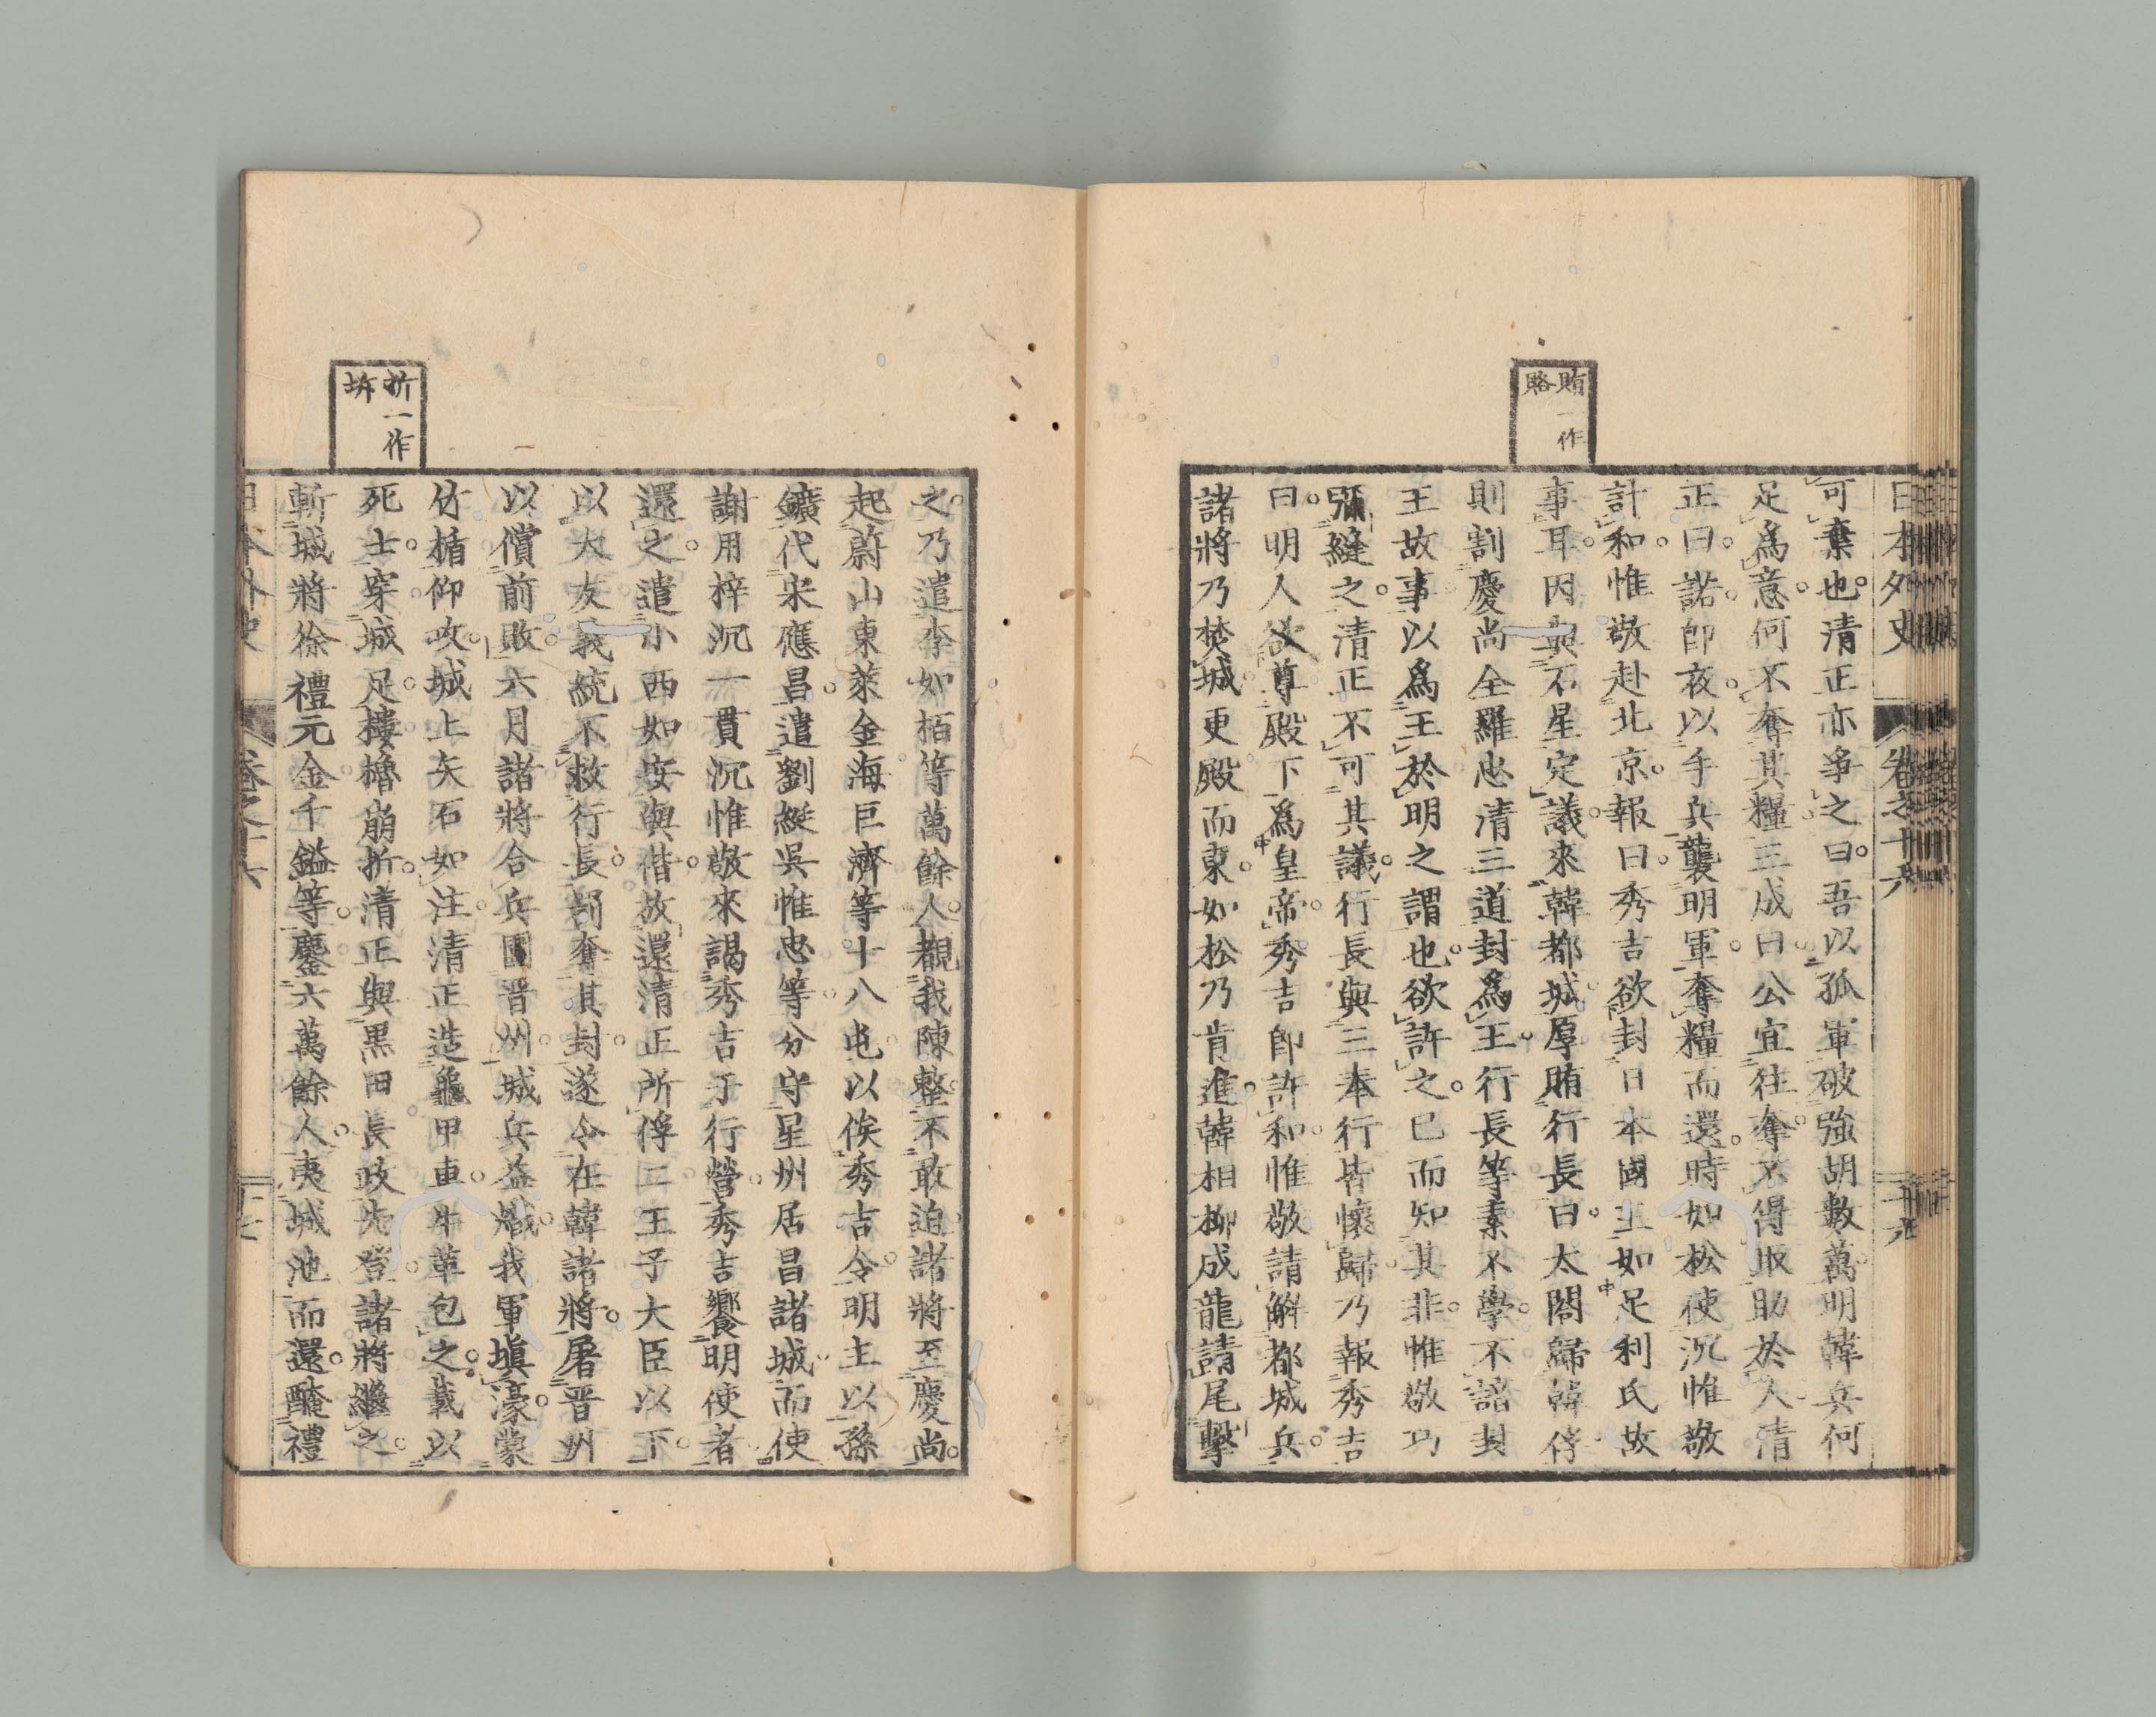 日本外史
卷之十六
二十九
賄一作
賂
可棄也清正亦爭之曰吾以孤軍破強胡數萬明韓兵何
足爲意何不奪其糧三成曰公宜往奪不得取助於人清
正曰諾卽夜以手兵襲明軍奪糧而還時如松使沉惟敬
計和惟敬赴北京報曰秀吉欲封日本國王如足利氏故
事耳因與石星定議來韓都城厚賄行長曰太閤歸韓俘
則割慶尚全羅忠清三道封爲王行長等素不學不諳封
王故事以爲王於明之謂也欲許之已而知其非惟敬巧
彌縫之清正不可其議行長與三奉行皆懷歸乃報秀吉
曰明人欲尊殿下爲皇帝秀吉卽許和惟敬請解都城兵
諸將乃焚城更殿而東如松乃肯進韓相柳成龍請尾擊
之乃遣李如栢等萬餘人覩我陳整不敢迫諸將至慶尚
起蔚山東萊金海巨濟等十八屯以俟秀吉令明主以孫
鑛代宋應昌遣劉綎吳惟忠等分守星州居昌諸城而使
謝用梓沉一貫沉惟敬來謁秀吉于行營秀吉饗明使者
還之遣小西如安與偕故還清正所俘二王子大臣以下
以大友義統不救行長罰奪其封遂令在韓諸將屠晋州
以償前敗六月諸將合兵圍晋州城兵益熾我軍塡濠蒙
竹楯仰攻城上矢石如注清正造龜甲車牛革包之載以
死士穿城足樓櫓崩折清正與黒田長政先登諸將繼之
斬城將徐禮元金千鎰等鏖六萬餘人夷城池而還醃禮
折一作
坼
日本外史
卷之十六